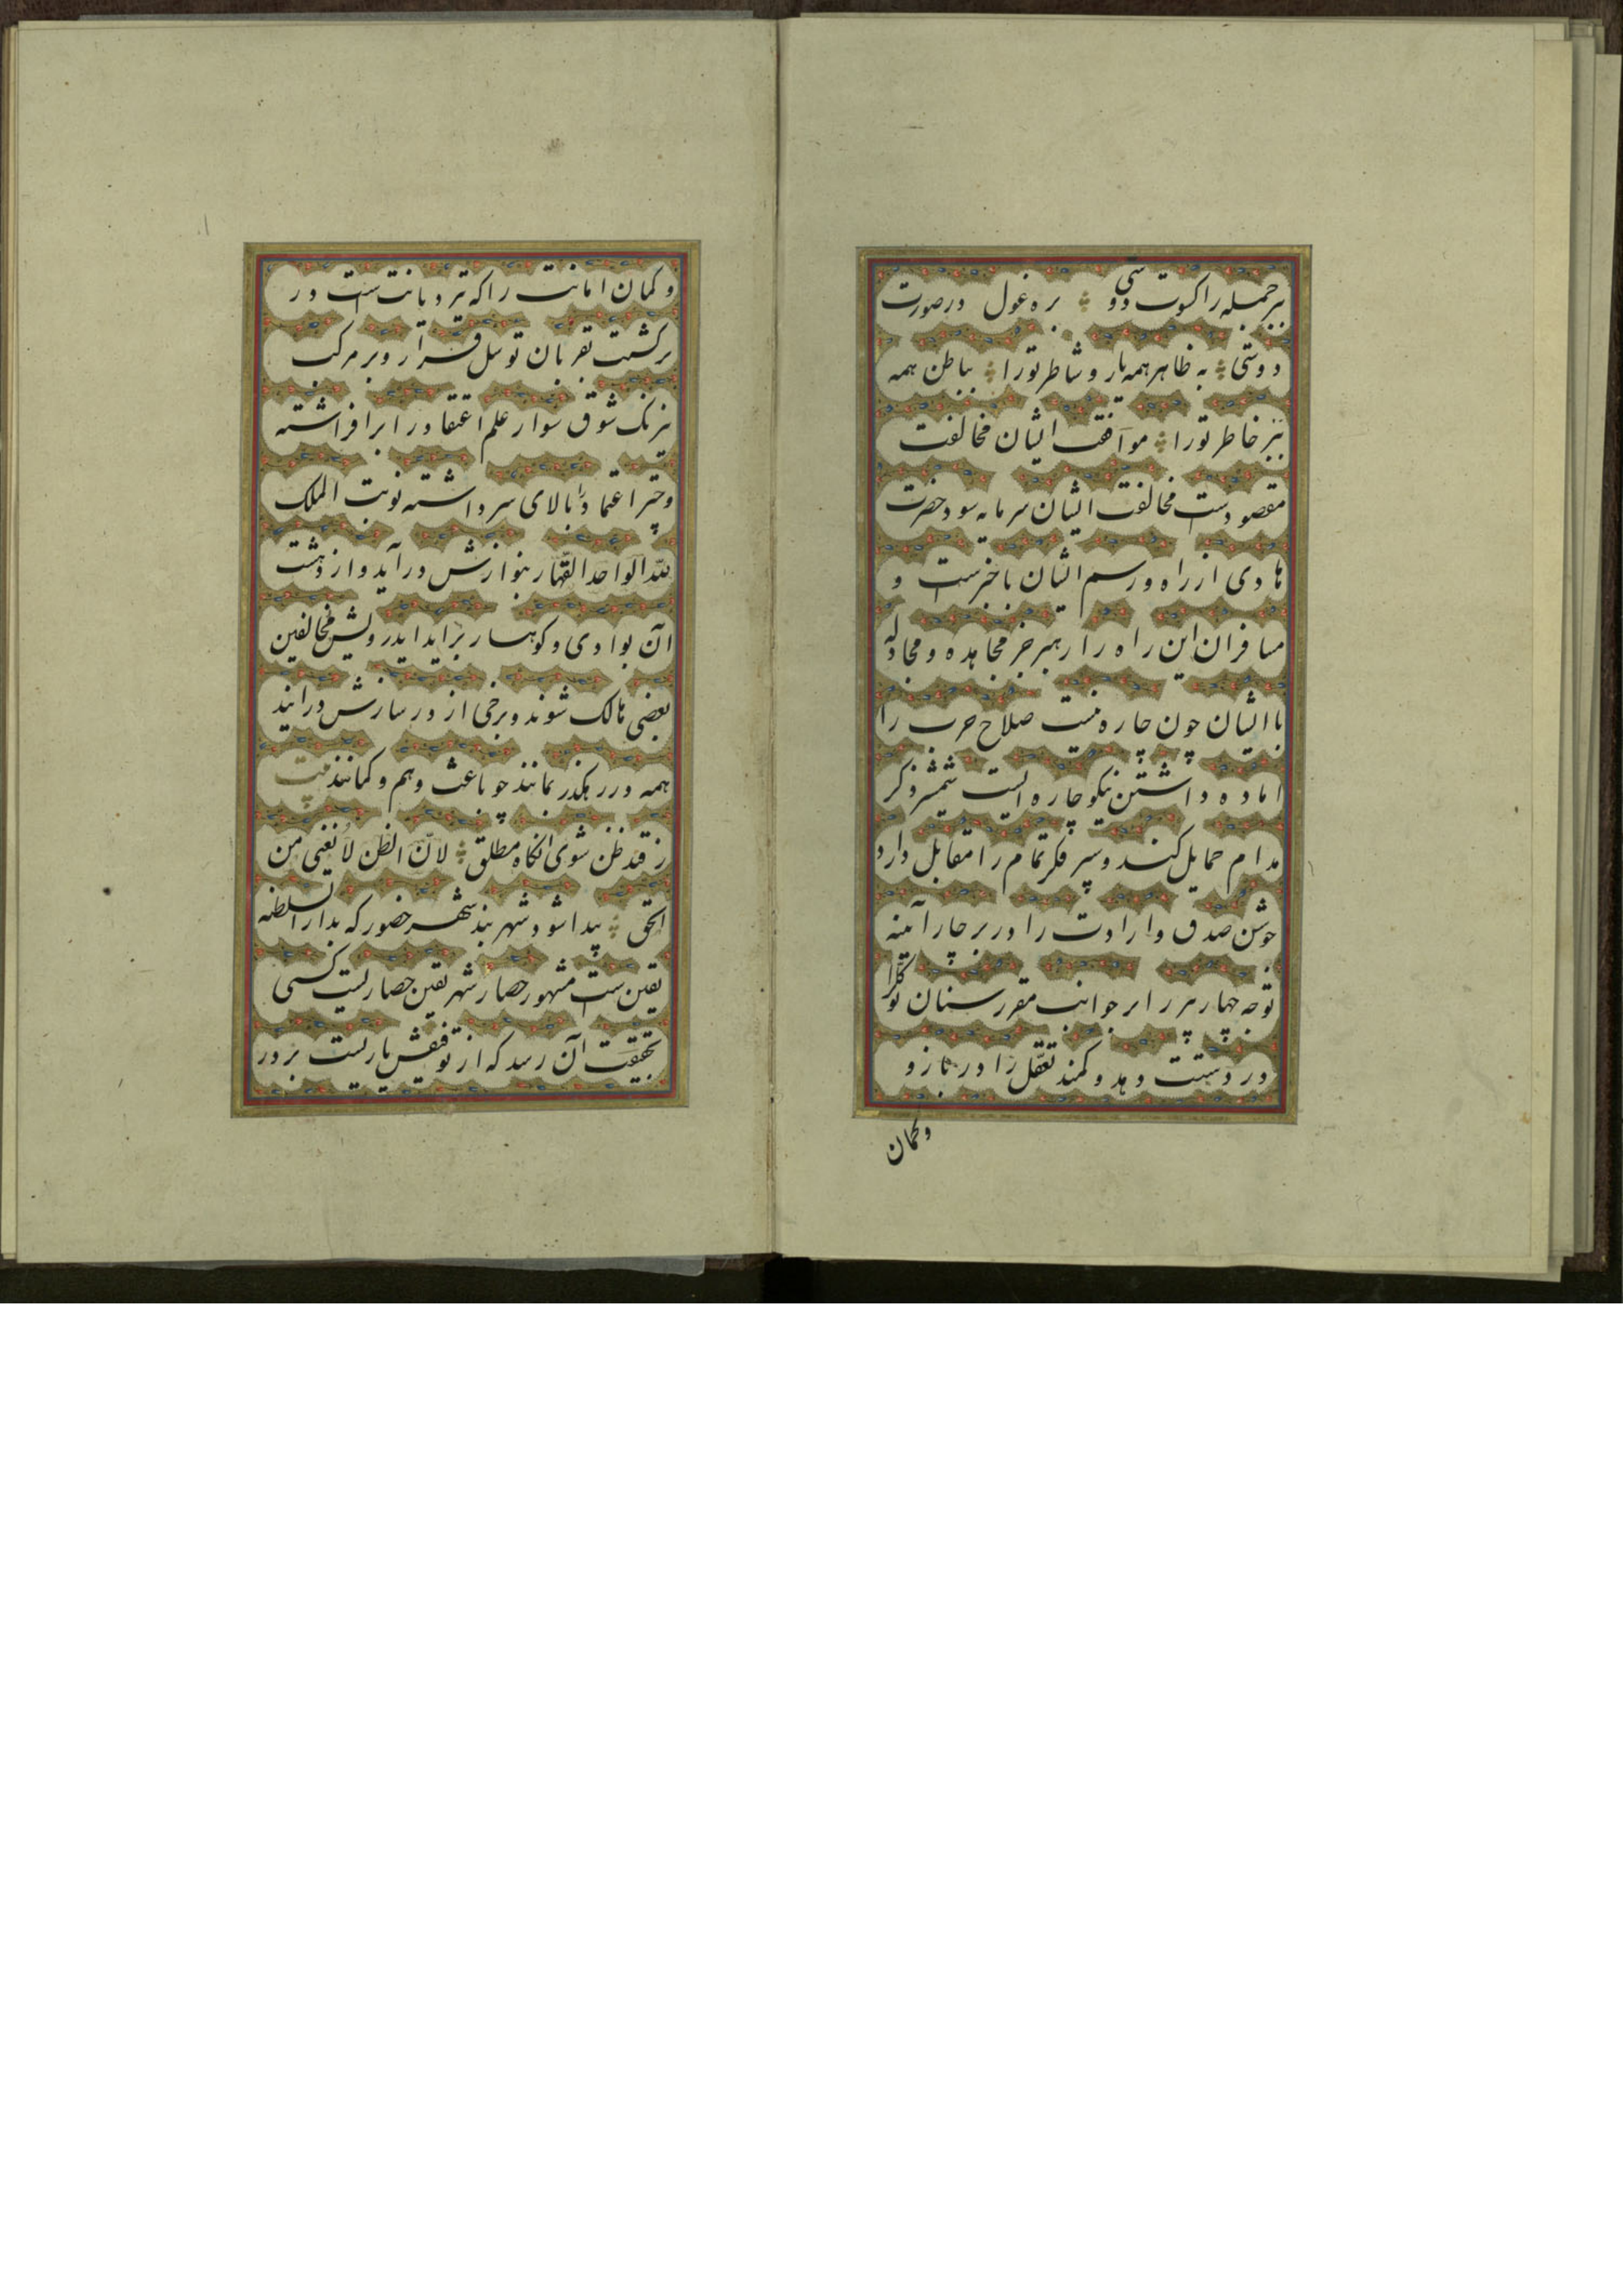 بر جمله را کسوت دوستی بره غول در صورت
دوستی به ظاهر همه یار و شاطر تو را بباطن همه
خاطر تو را موافقت ایشان مخالفت
مقصودست مخالفت ایشان سرمایه سود حضرت
هادی از راه و رسم ایشان باخبرست و
مسافران این راه را رهبر جز مجاهده و مجادله
با ایشان چون چاره نیست صلاح حرب را
اماده داشتن نیکو چاره ایست شمشیر ذکر
مدام حمایل کند و سپر فکر تمام را مقابل دارد
جوشن صدق و ارادت را در بر چار آئینه
توجه چهار پر را بر جوانب مقرر سنان توکل را
در دست دهد و کمند تعقل را در بازو
وکمان
و کمان امانت را که تیر دیانت ست در
بر کشت بقربان توسل قرار و بر مرکب
شوق سوار علم اعتقاد را برافراشته
و چتر اعتماد را بالای سر داشته نوبت الملک
لله الواحد القهار بنوازش در آید و از دهشت
آن بوادی و کوهسار براید ایدرویش مخالفین
بعضی هالک شوند و برخی از در سازش درایند
همه در رهکذر بمانند چو باعث وهم و کمانند بیت
ز قید ظن شوی انکاه مطلق لان الظن لا یغنی من
الحق پیدا شود شهر بند شهر حضور که بدار السلطنه
یقین ست مشهور حصار شهر یقین حصاریست کسی
بحقیقت آن رسد که از توفیقش یاریست بر در